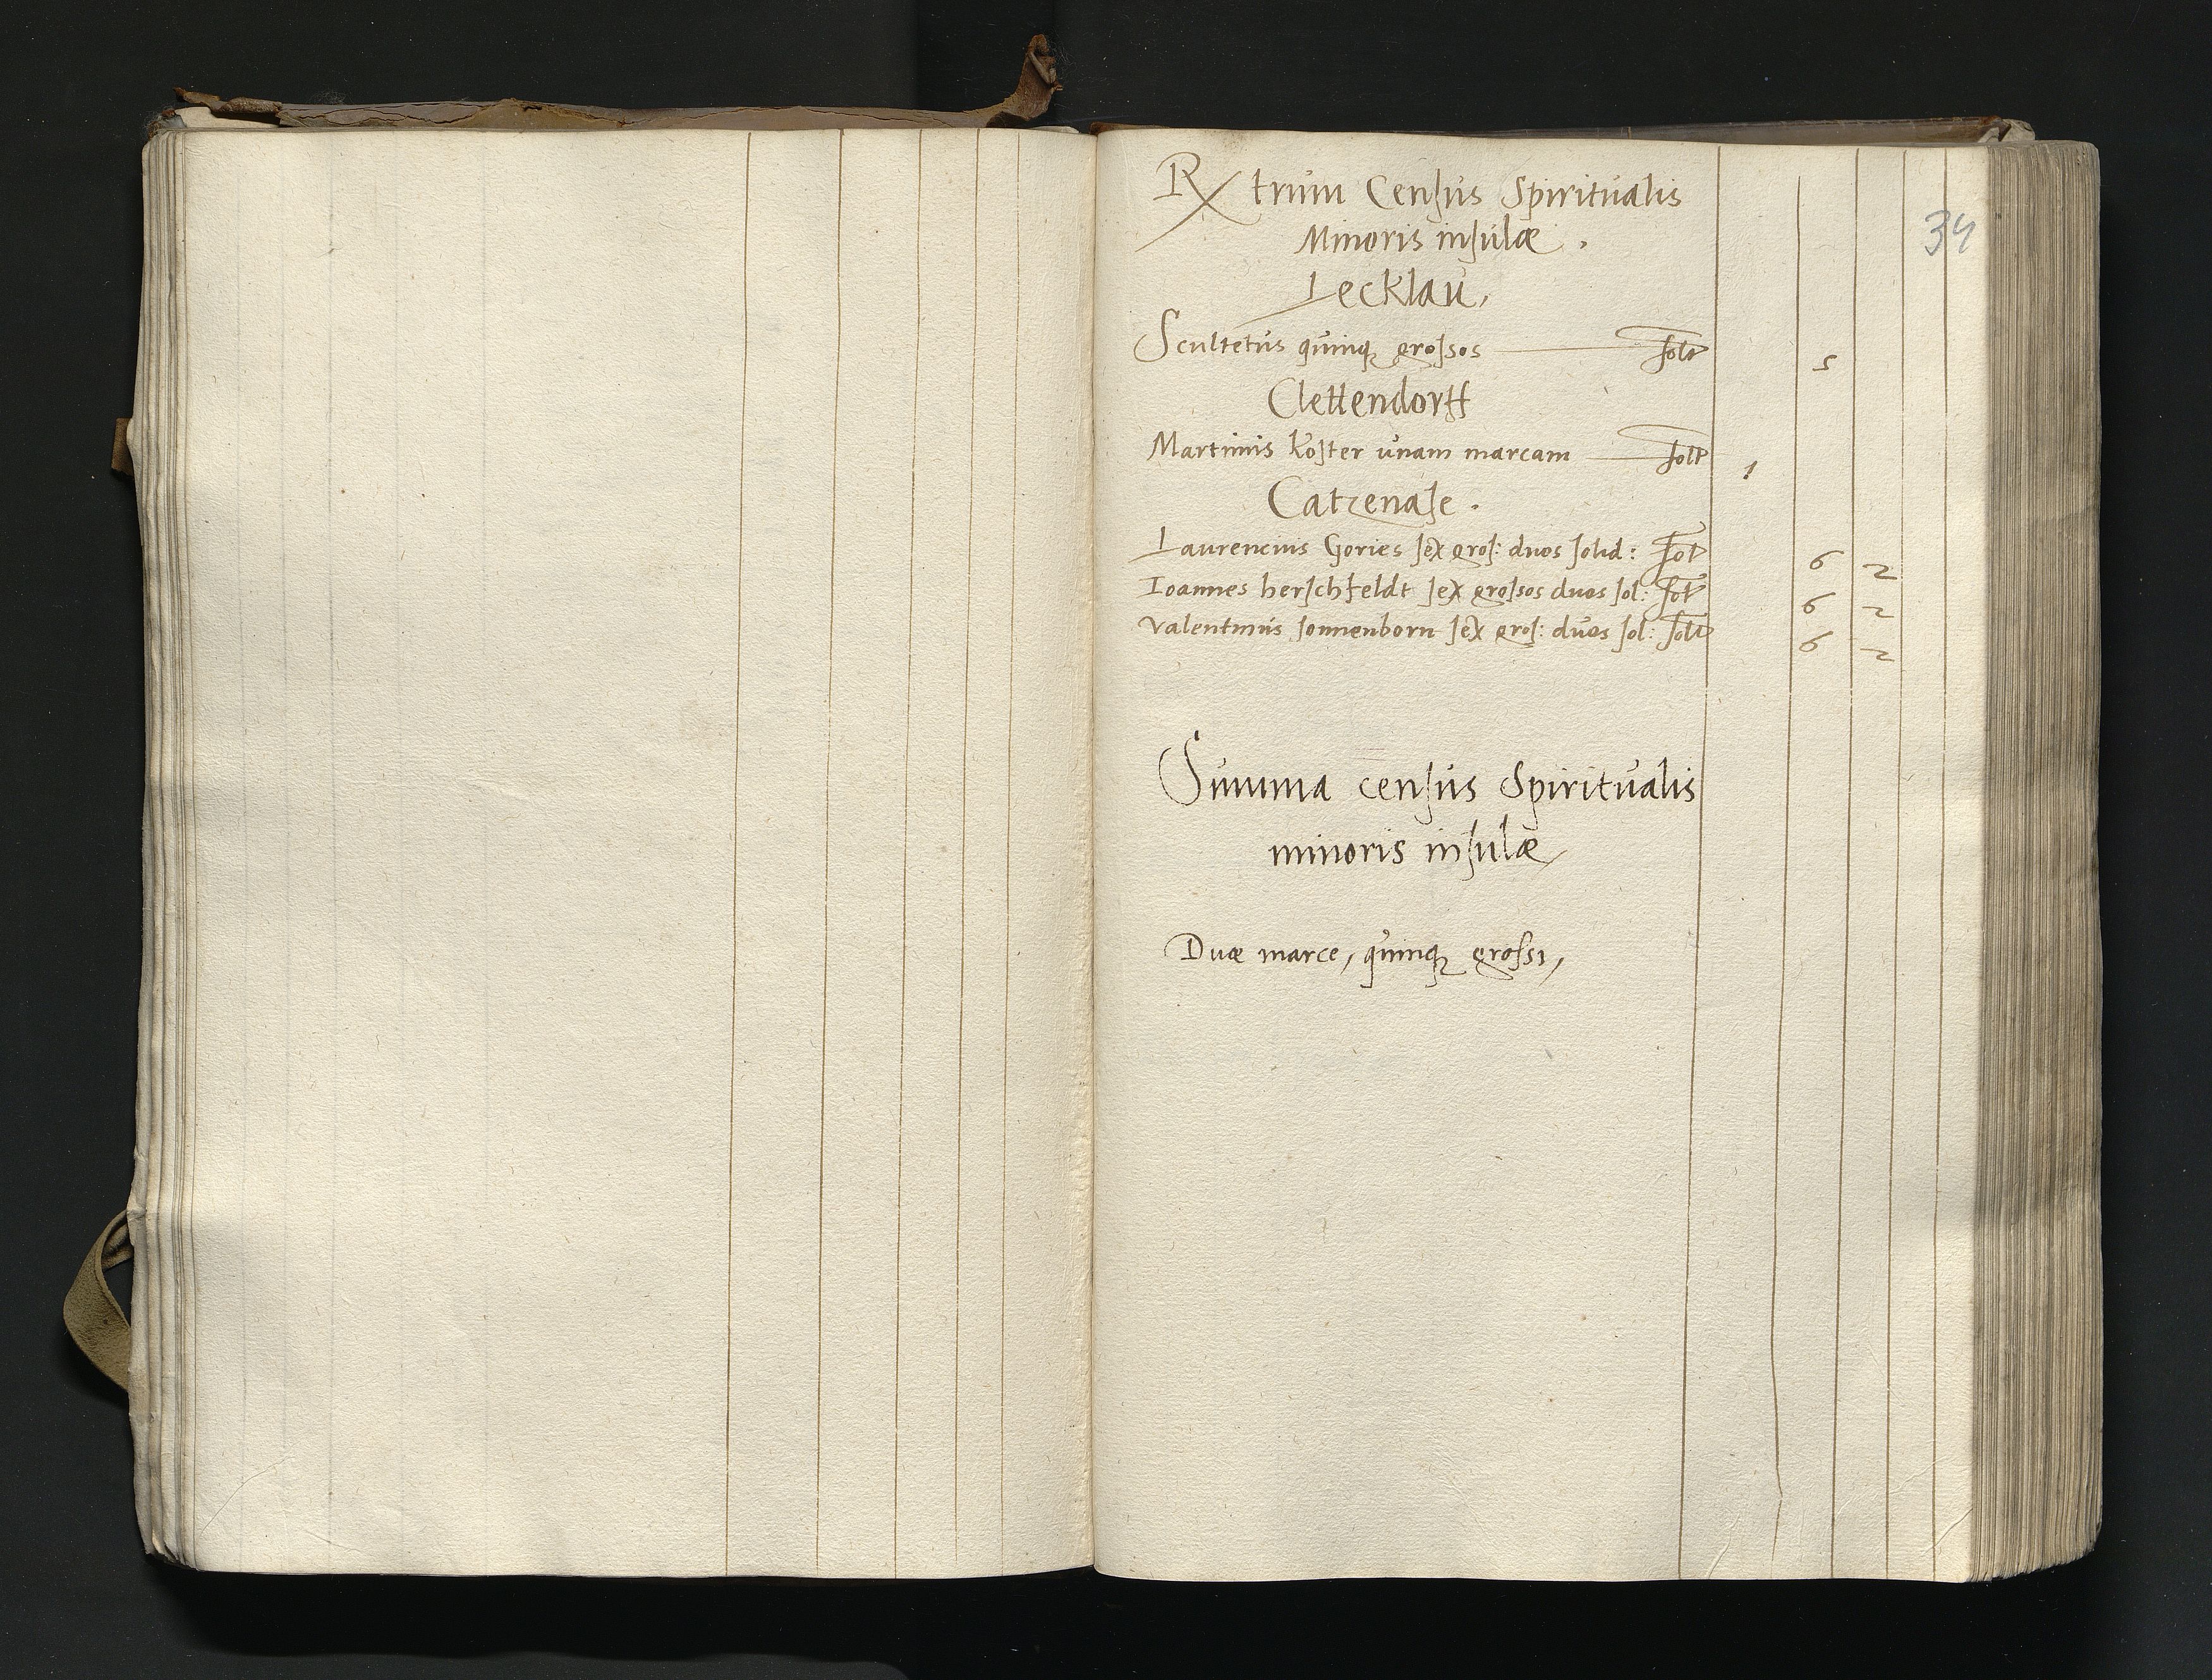 Rx trum Censūs Spiritūalis
34
Minoris insūlæ .
Lecklaū,
Scultetūs qūinq₃ grossos — solt 5
Clettendorff
Martinūs Koster ūnam marcam — solt 1
Catzenase .
Laurencius Gories sex gros: duos solid: solt 6 2
Ioannes herschfeldt sex grossos duos sol: solt 6 2
Valentinūs sonnenborn sex gros: dūos sol: solt 6 2
Sūmma censūs Spiritūalis
minoris insūlæ
Duæ marce, qūinq₃ grossi,